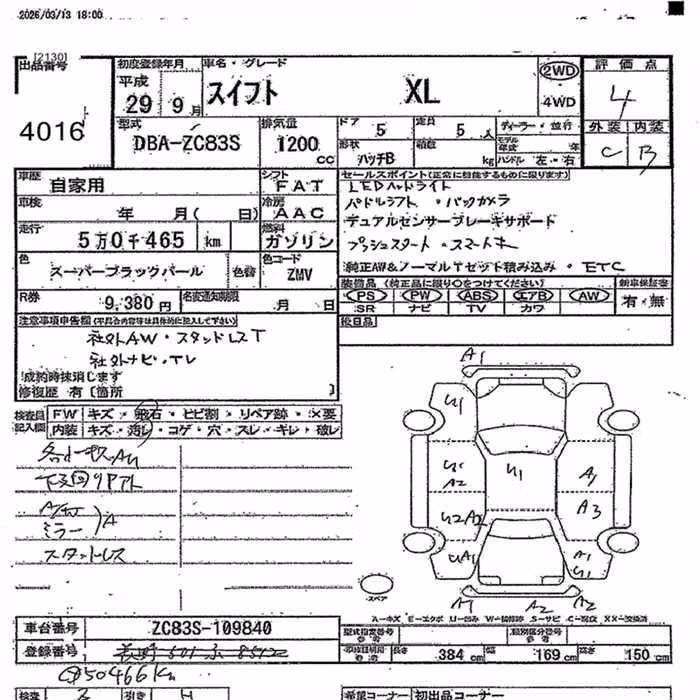 2026/03/13 18:00
[2130]
出品番号
4016
初度登録年月
平成
29 9月
車名・グレード
スイフト XL
2WD
4WD
評価点
4
外装 内装
C B
型式
DBA-ZC83S
排気量
1200
cc
ドア
5
定員
5人
形状
ハッチB
積数
kg
ディーラー・並行
モデル年式
年
ハンドル 左・右
車歴
自家用
シフト
FAT
車検
年 月( 日)
冷房
AAC
走行
5万0千465 km
燃料
ガソリン
色
スーパーブラックパール
色替
色コード
ZMV
R券
9,380円
名変通知期限
月 日
セールスポイント(正常に機能するものに限ります)
LEDヘッドライト
パドルシフト・バックカメラ
デュアルセンサーブレーキサポート
プッシュスタート・スマートキー
純正AW&ノーマルTセット積み込み・ETC
装備品(純正品に限り○をつけてください)
PS PW ABS エアB AW
SR ナビ TV カワ
新車保証書
有・無
後日品
注意事項申告欄(不具合内容等は具体的に記入して下さい)
社外AW・スタッドレスT
社外ナビ・TV
成約時抹消します
修復歴 有〔箇所 〕
検査員記入欄
FW キズ・飛石・ヒビ割・リペア跡・×要
内装 キズ・汚レ・コゲ・穴・スレ・キレ・破レ
ミラー
A
スタットレス
A1
U1
U1
A2
U1
A1
A3
U2A2
UA1
A1
U1
A1 A2 A2
スペア
A-キズ E-エクボ U-凹み W-補修跡 S-サビ C-腐食 XX-交換済
車台番号
ZC83S-109840
登録番号
型式指定番号
類別区分番号
車検証明
長さ 384cm
幅 169cm
高さ 150cm
50466Km
希望コーナー
初出品コーナー